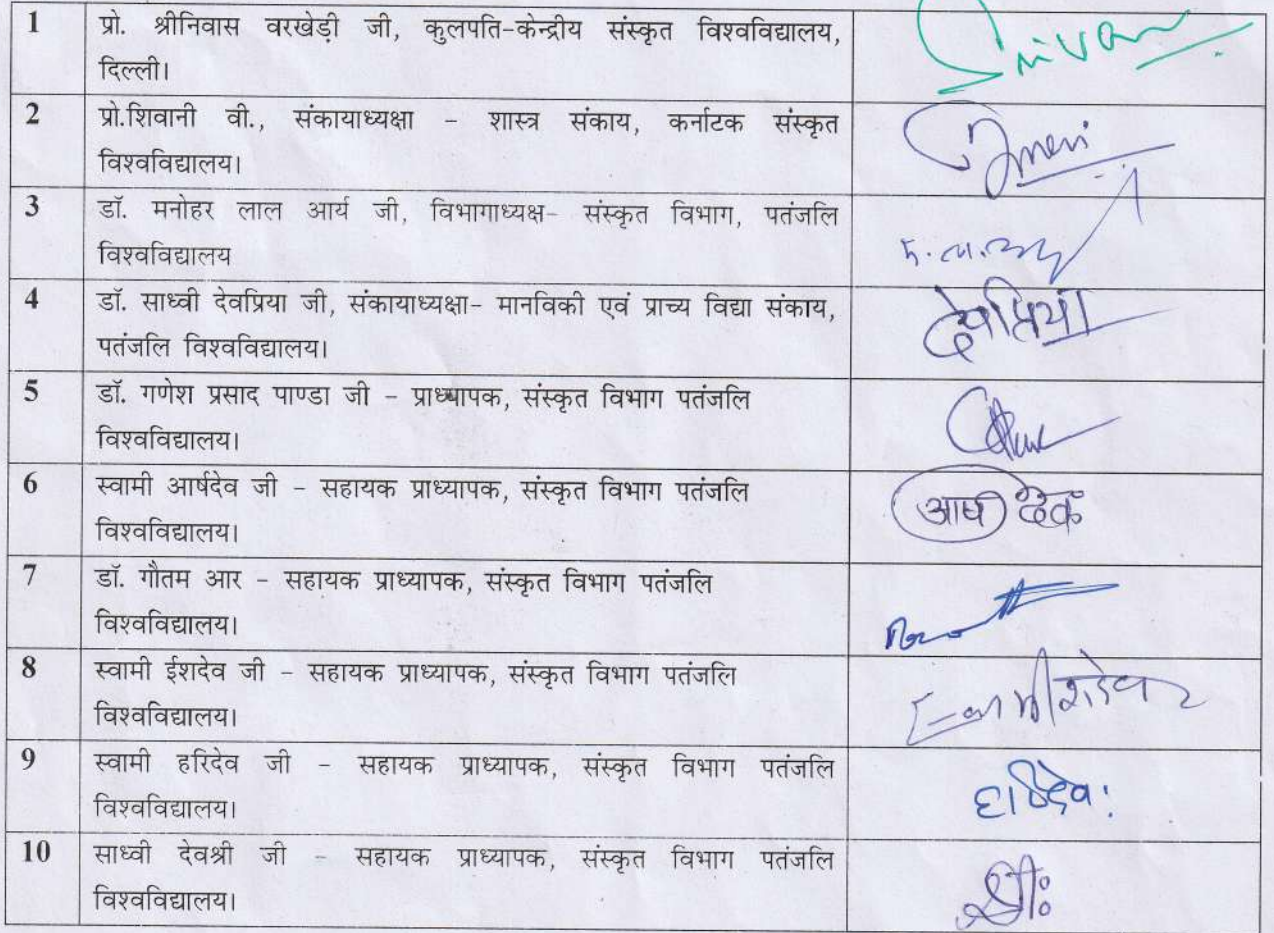 1 प्रो. श्रीनिवास वरखेड़ी जी, कुलपति-केन्द्रीय संस्कृत विश्वविद्यालय,
दिल्ली।
2 प्रो.शिवानी वी., संकायाध्यक्षा - शास्त्र संकाय, कर्नाटक संस्कृत
विश्वविद्यालय।
3 डॉ. मनोहर लाल आर्य जी, विभागाध्यक्ष- संस्कृत विभाग, पतंजलि
विश्वविद्यालय
4 डॉ. साध्वी देवप्रिया जी, संकायाध्यक्षा- मानविकी एवं प्राच्य विद्या संकाय, देवप्रिया
पतंजलि विश्वविद्यालय।
5 डॉ. गणेश प्रसाद पाण्डा जी - प्राध्यापक, संस्कृत विभाग पतंजलि
विश्वविद्यालय।
6 स्वामी आर्षदेव जी - सहायक प्राध्यापक, संस्कृत विभाग पतंजलि
विश्वविद्यालय।
7 डॉ. गौतम आर - सहायक प्राध्यापक, संस्कृत विभाग पतंजलि
विश्वविद्यालय।
8 स्वामी ईशदेव जी - सहायक प्राध्यापक, संस्कृत विभाग पतंजलि
विश्वविद्यालय।
9 स्वामी हरिदेव जी - सहायक प्राध्यापक, संस्कृत विभाग पतंजलि
विश्वविद्यालय। हरिदेव:
10 साध्वी देवश्री जी - सहायक प्राध्यापक, संस्कृत विभाग पतंजलि
विश्वविद्यालय। श्रीः